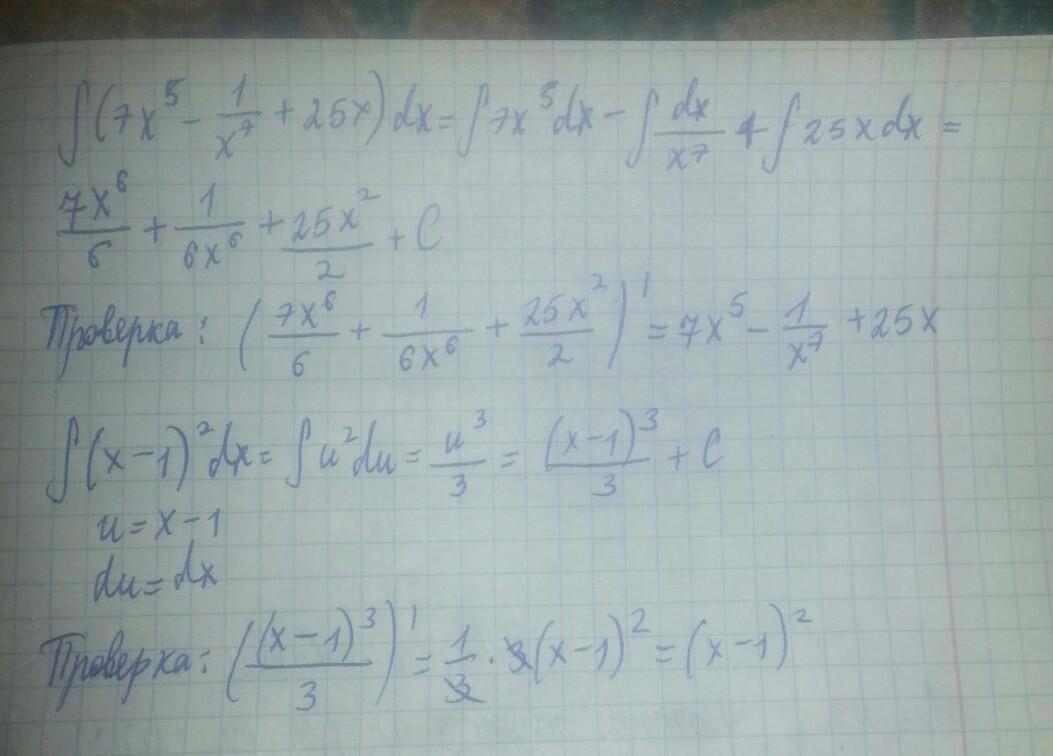 ∫(7x⁵ − 1/x⁷ + 25x) dx = ∫7x⁵dx − ∫dx/x⁷ + ∫25xdx =
7x⁶/6 + 1/6x⁶ + 25x²/2 + C
Проверка: (7x⁶/6 + 1/6x⁶ + 25x²/2)' = 7x⁵ − 1/x⁷ + 25x
∫(x−1)²dx = ∫u²du = u³/3 = (x−1)³/3 + C
u = x − 1
du = dx
Проверка: ((x−1)³/3)' = 1/3 · 3(x−1)² = (x−1)²